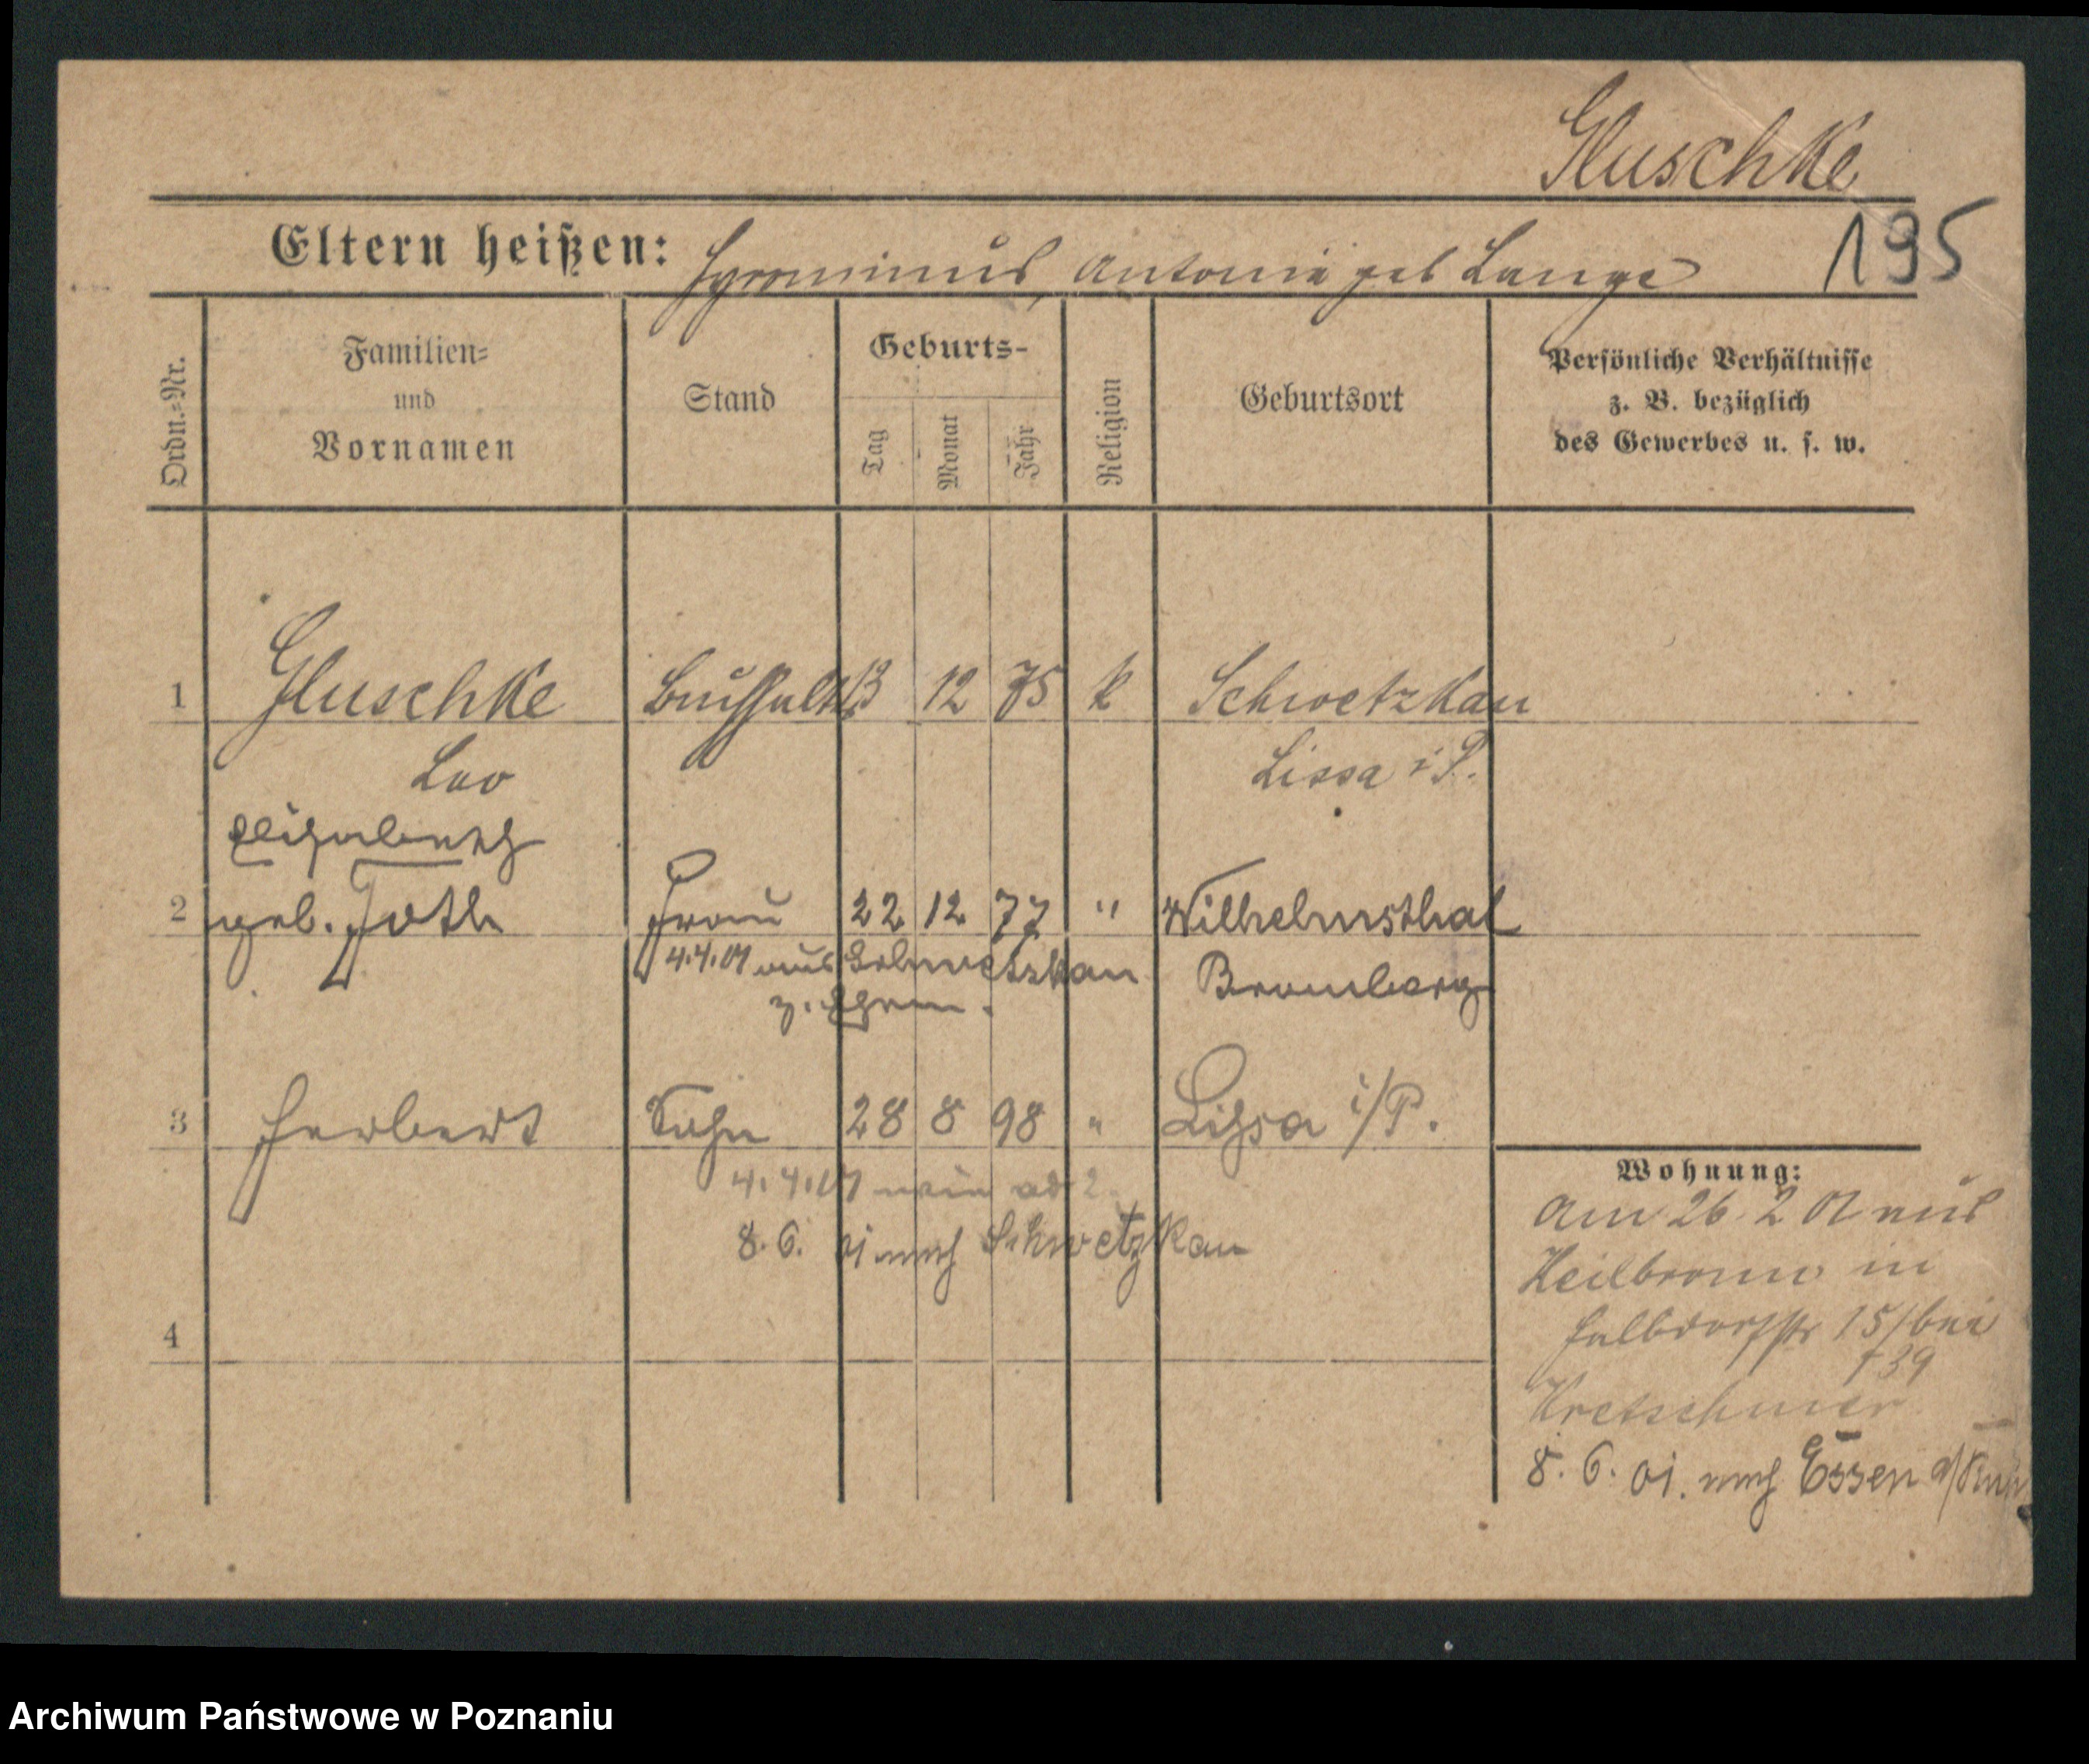 Gluschke
195
Eltern heißen: Hyronimus, Antonie geb Lange
Ordn.=Nr.
Familien=
und
Vornamen
Stand
Geburts-
Tag
Monat
Jahr
Religion
Geburtsort
Persönliche Verhältnisse
z. B. bezüglich
des Gewerbes u. s. w.
1 Gluschke 13 12 75 k Schwetzkau
Leo Lissa i P.
Elisabeth
2 geb. Frau 22 12 77 " Wilhelmsthal
4.4.01 aus Schwetzkau Bromberg
z. Ehem.
3 Herbert Sohn 28 8 98 " Lissa i/P.
4.4.01 wie ad 2
8. 6. 01 nach Schwetzkau
4
Wohnung:
Am 26 2 01 aus
Heilbronn in
Halbdorfstr 15/bei
739
Kretschmer
8. 6. 01. nach Essen a/Ruhr
Archiwum Państwowe w Poznaniu